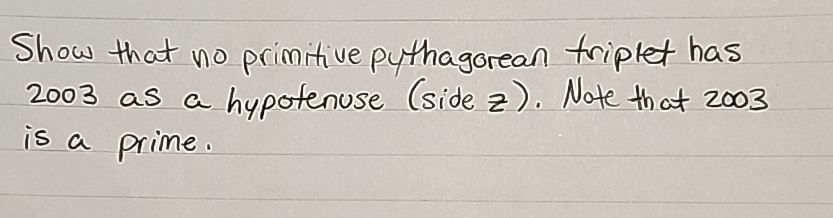 Show that no primitive pythagorean triplet has
2003 as a hypotenuse (side z). Note that 2003
is a prime.